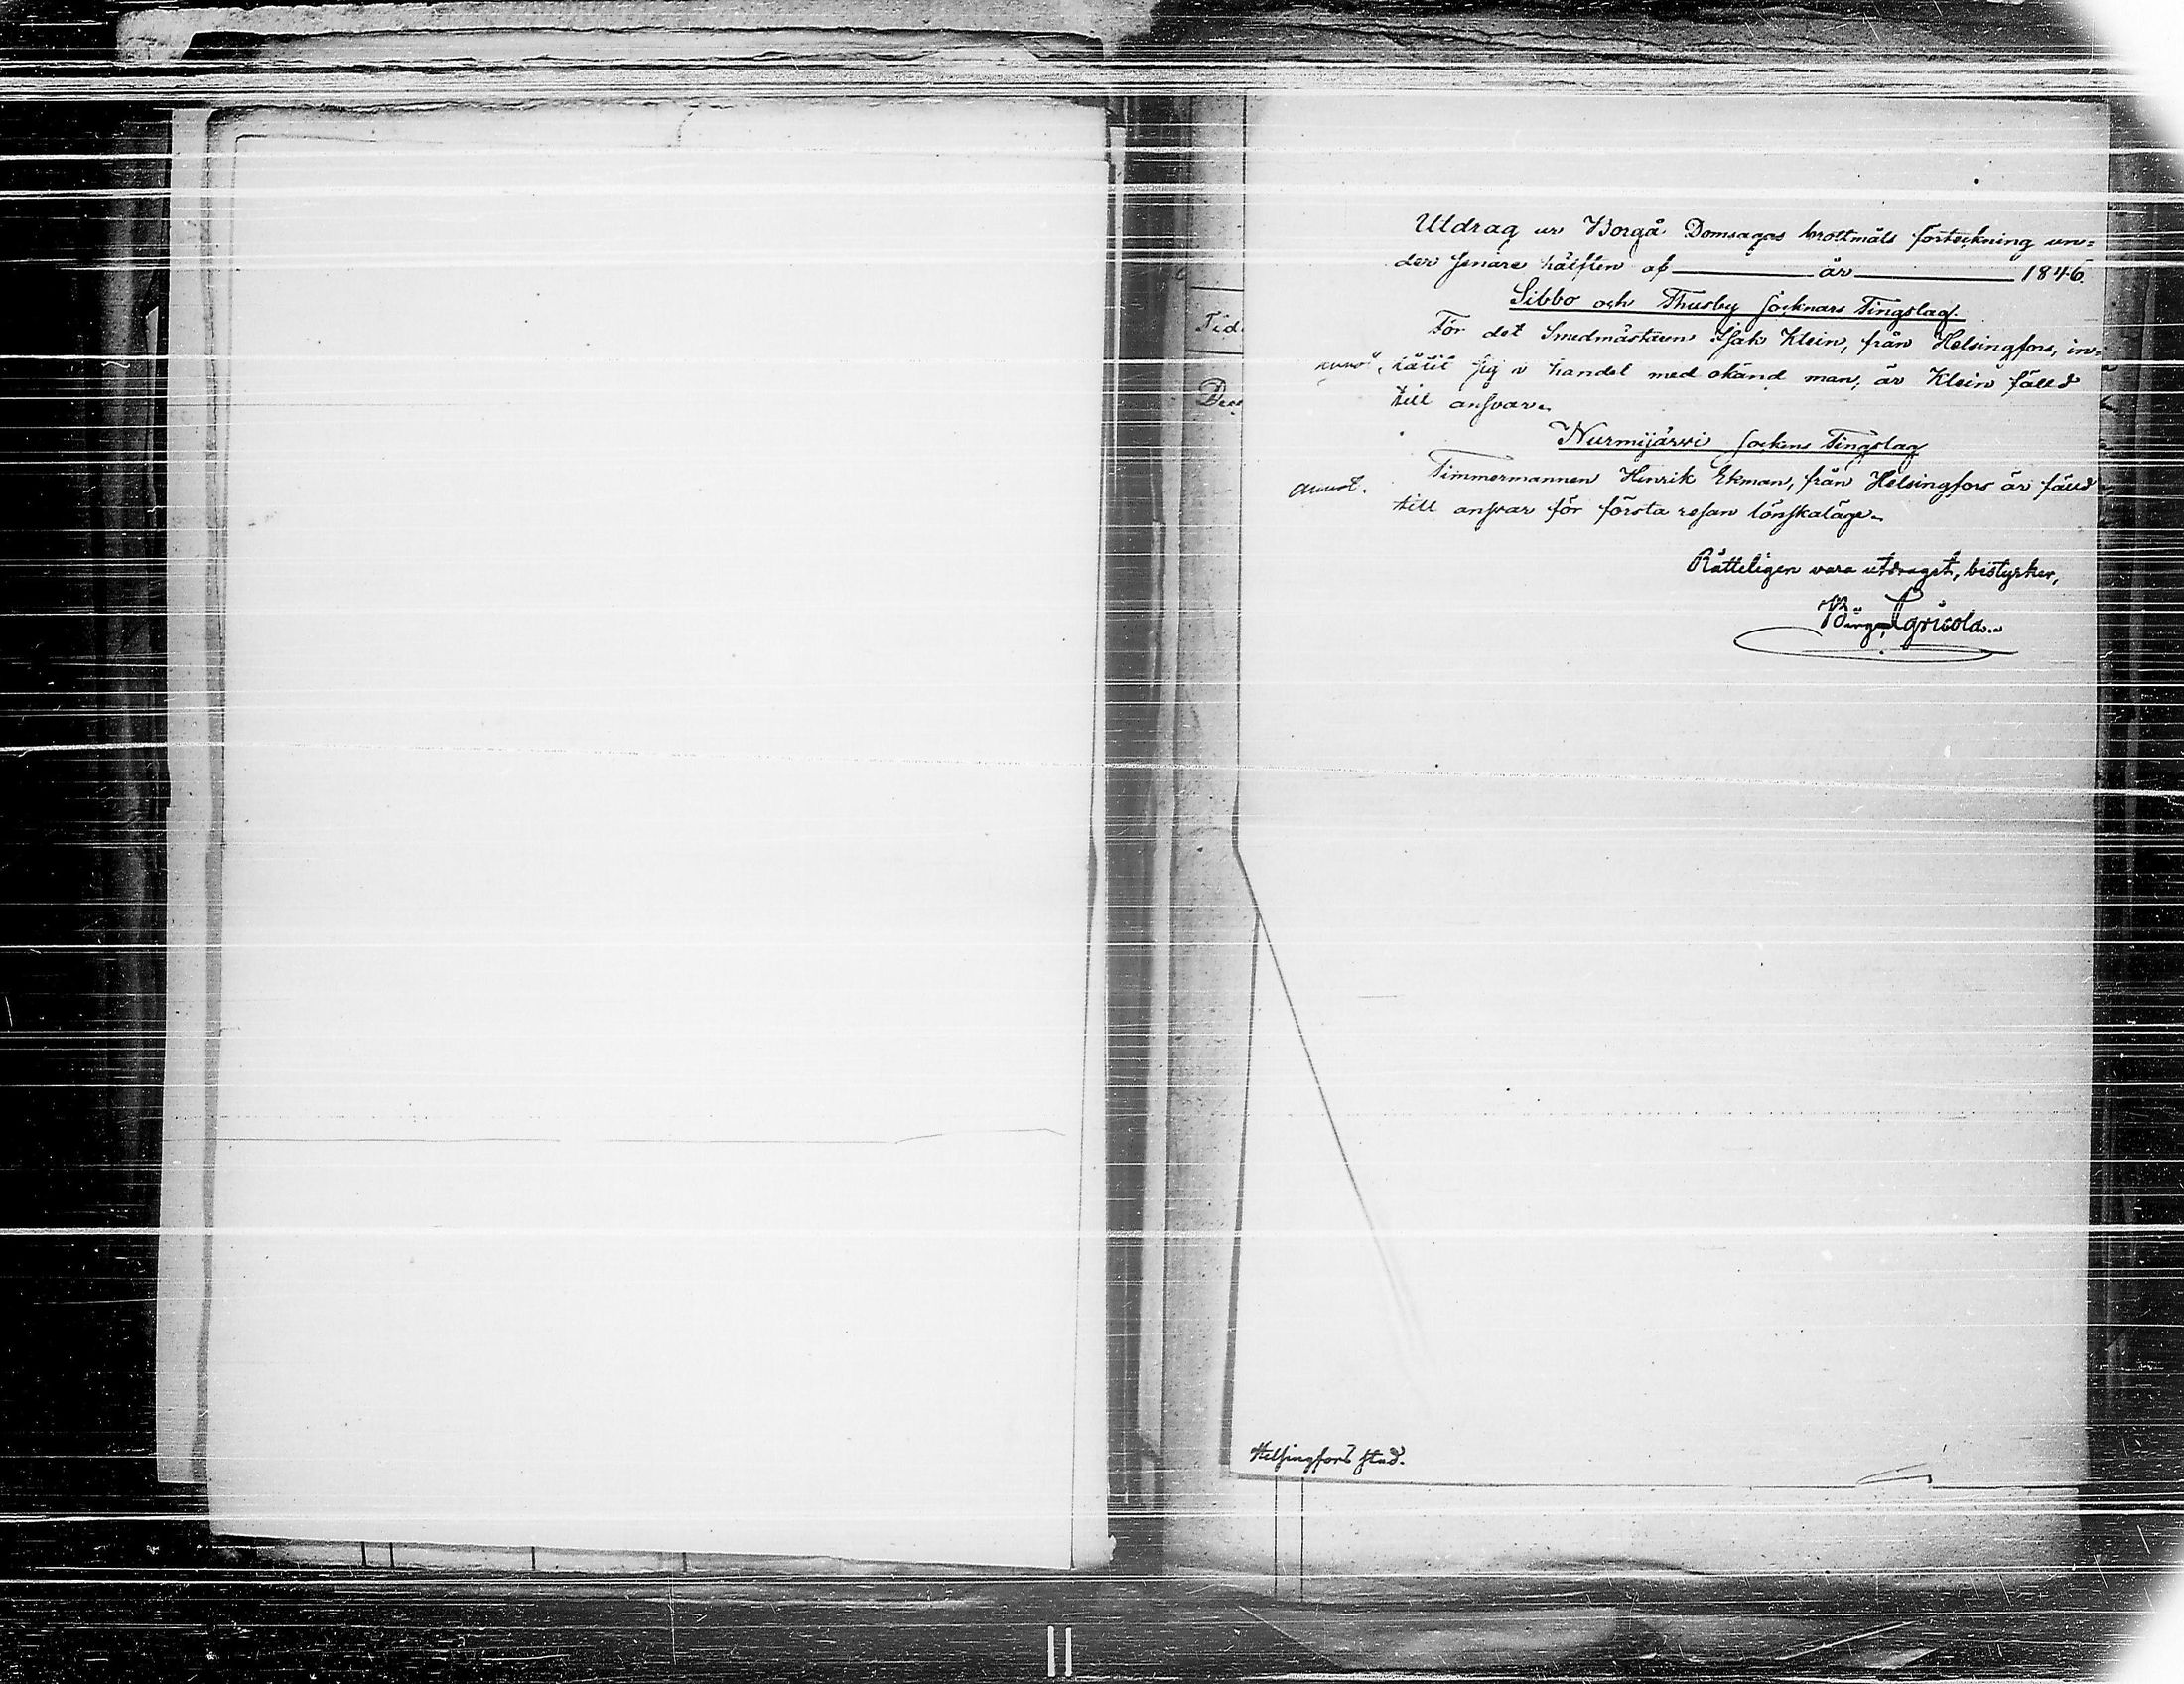 Utdrag ur Borgå Domsagas brottmåls förteckning un=
der senare hälften af ——— år ——— 1846.
Sibbo och Thusby socknars Tingslag.
För det Smedmästaren Isak Klein, från Helsingfors, in=
låtit sig i handel med okänd man, är Klein fälld
till ansvar.
Nurmijärvi sockens Tingslag
Timmermannen Henrik Ekman, från Helsingfors är fälld
annot.
till ansvar för första resan lönskaläge.
Rätteligen vara utdraget, bestyrker,
Agricola.
Helsingfors stad.
Tid